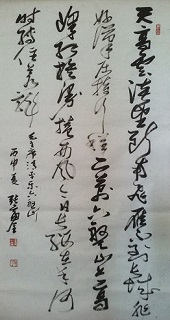 天高雲淡望断南飛雁不到长城非
好漢屈指行程二萬六盤山上高
峰红旗漫捲西風今日长缨在手何
時縛住蒼龍
毛主席词清平乐六盘山
丙申夏